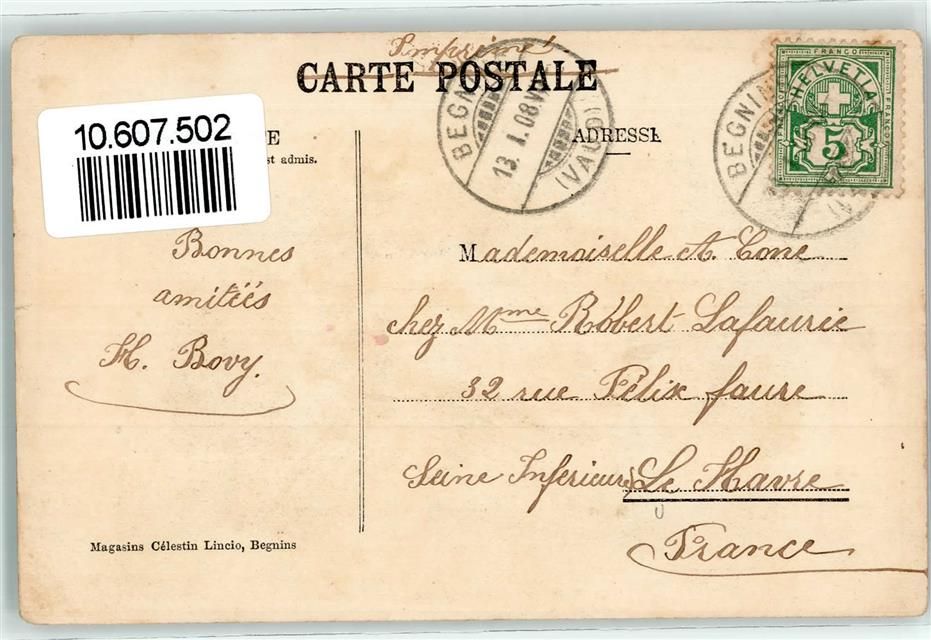 Imprimé
CARTE POSTALE
10.607.502
E
st admis.
BEGNINS
13.I.08.V
(VAUD)
ADRESSE
BEGNINS
FRANCO
HELVETIA
FRANCO
5
Bonnes
amitiés
H. Bovy.
Mademoiselle A. Cone
chez Mme Robert Lafaurie
32 rue Félix faure
Seine Inferieure Le Havre
France
Magasins Célestin Lincio, Begnins